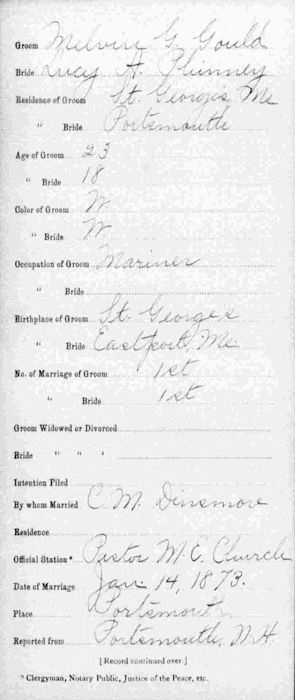 Groom Melvin G. Gould
Bride Lucy A. Phinney
Residence of Groom St. Georges, Me
" Bride Portsmouth
Age of Groom 23
" Bride 18
Color of Groom W.
" Bride W.
Occupation of Groom Mariner
" Bride
Birthplace of Groom St. Georges
" Bride Eastport, Me.
No. of Marriage of Groom 1st
" Bride 1st
Groom Widowed or Divorced
Bride " " "
Intention Filed
By whom Married C. M. Dinsmore
Residence
Official Station * Pastor M. E. Church
Date of Marriage Jan. 14, 1873.
Place Portsmouth
Reported from Portsmouth, N.H.
[Record continued over.]
* Clergyman, Notary Public, Justice of the Peace, etc.